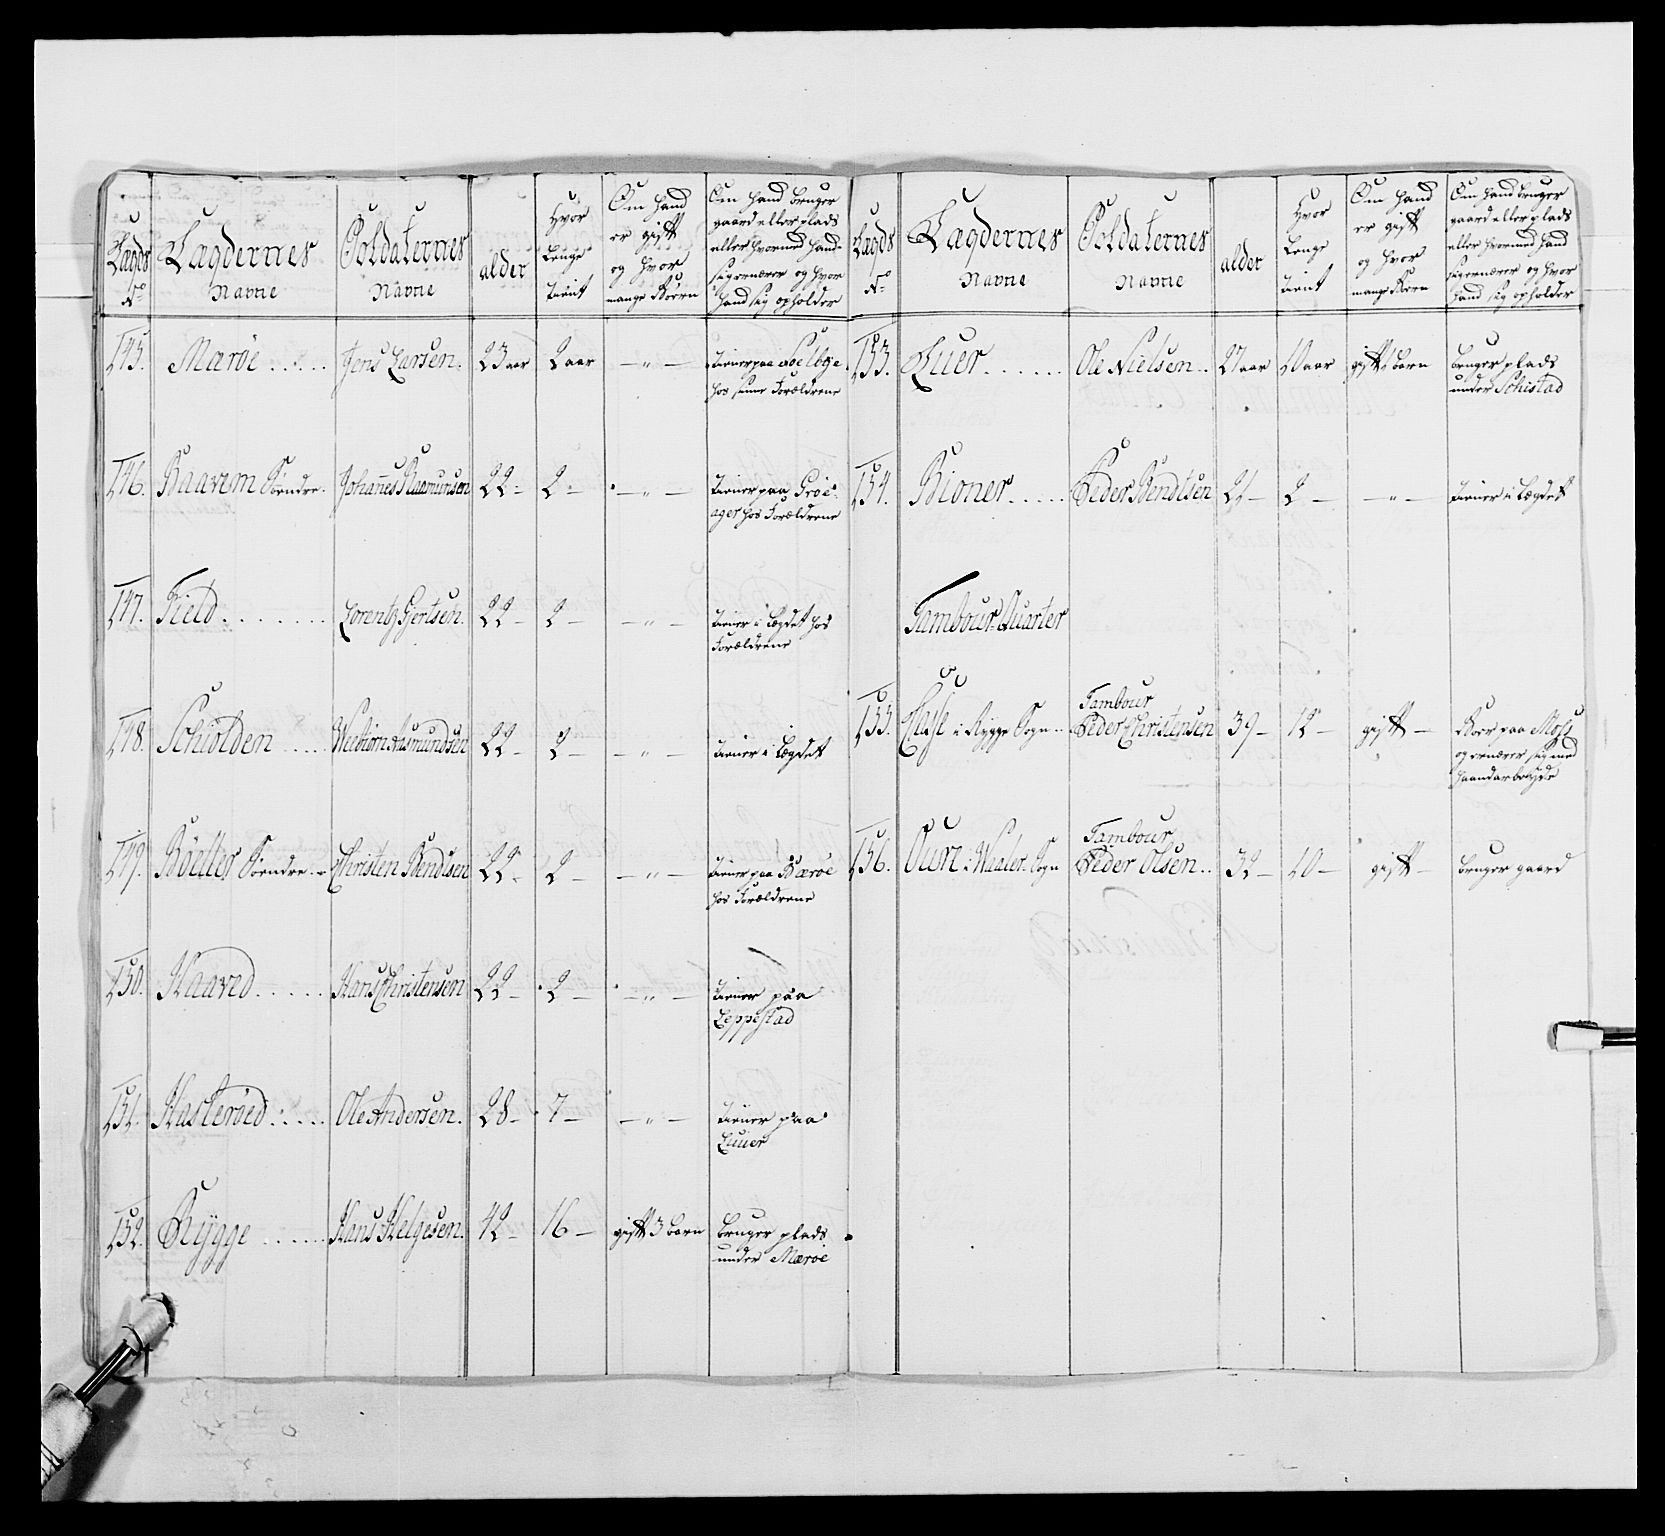 Lægds No
Lægdernes Navne
Soldaternes Navne
alder
Hvor Lenge tient
Om hand er gift og hvor mange Börn
Om hand bruger gaard eller plads eller hvormed hand sig ernærer og hvor hand sig opholder
145. Maröe Jens Larsen. 23 aar 2 aar — " — tiener paa Soelbye hos sinne Forældrene
146. Raavem Söndre Johannes Rasmunsen 22 - 2 - — " — tiener paa Pröe- ager hos Forældrene
147. Field Lorentz Gjertsen. 22 - 2 - — " — tiener i Lægdet hos Forældrene
148. Schiolden Weebiorn Asmundsen 22 - 2 - — " — tiener i Lægdet
149. Böelter Söndre Christen Bendtsen 22 - 2 - — " — tiener paa Bæröe hos Forældrene
150. Haaved Hans Christensen 22 - 2 - — " — tiener paa Leppestad
151. Hasleröed Ole Andersen. 28 - 7 - — " — tiener paa Luuer
152. Rygge Hans Helgesen. 42 - 16 - gift 3 barn bruger plads under Maröe
Lægds No
Lægdernes Navne
Soldaternes Navne
alder
Hvor Lenge tient
Om hand er gift og hvor mange Börn
Om hand bruger gaard eller plads eller hvormed hand sig ernærer og hvor hand sig opholder
153. Luer Ole Nielsen 27 aar 10 aar gift 1 barn bruger plads under Schistad
154. Bioner Peder Bendtsen 21 - 2 - — " — tiener i Lægdet
Tambour-Quarter
155. i Rygge Sogn Tambour Peder Christensen 39 - 12 - gift - Boer paa Moss og ernærer sig med haandarbeyde
156. Oure i Waaler Sogn Tambour Peder Olsen 32 - 10 - gift - bruger gaard